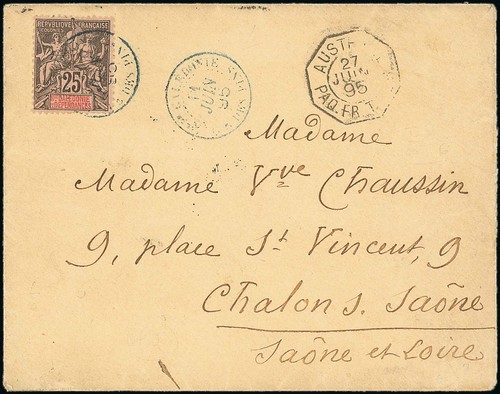 REPUBLIQUE FRANÇAISE
COLONIES
25
DÉPENDANCES
CALEDONIE
11
JUIN
95
27
JUIN
95
PAQ. FR.
Madame
Madame Vve Chaussin
9, place St Vincent, 9
Chalon s. Saône
Saône et Loire